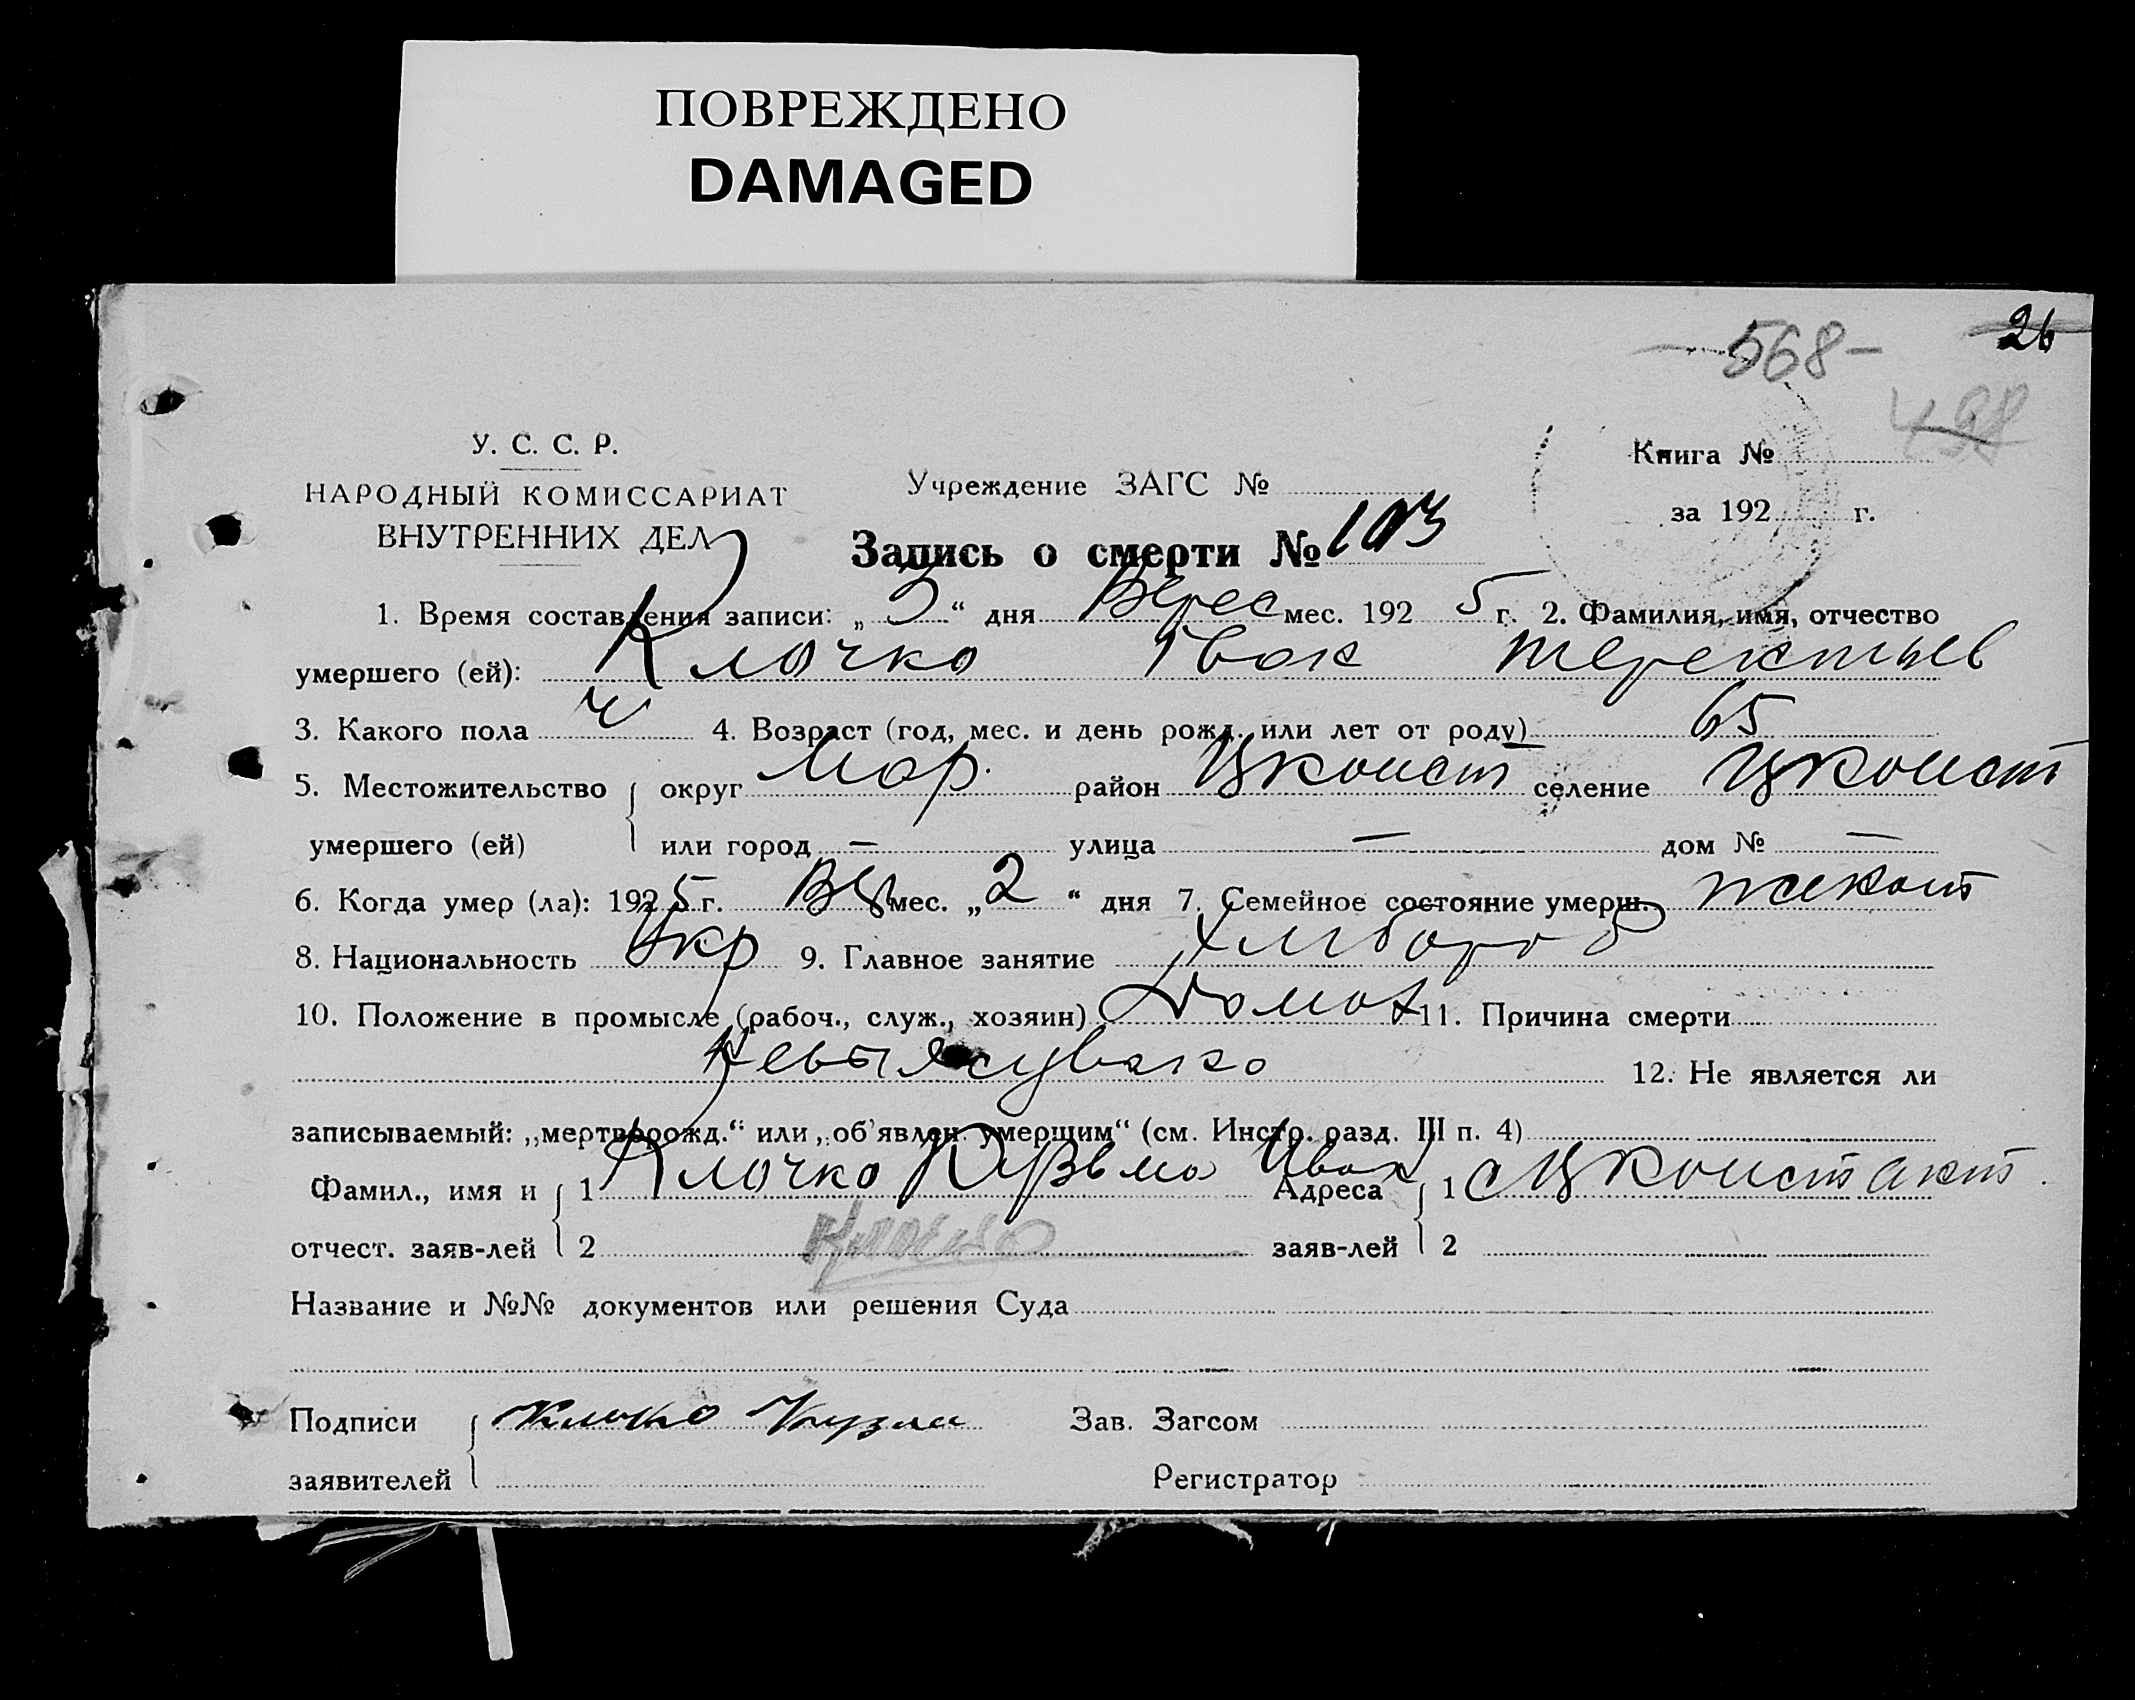 ПОВРЕЖДЕНО
DAMAGED
26
-568-
498
У. С. С. Р.
НАРОДНЫЙ КОМИССАРИАТ
ВНУТРЕННИХ ДЕЛ
Учреждение ЗАГС №
Книга №
за 192 г.
Запись о смерти № 103
1. Время составления записи: „ 3 “ дня Верес мес. 192 5 г. 2. Фамилия, имя, отчество
умершего (ей): Клочко Іван Терентьев
3. Какого пола ч 4. Возраст (год, мес. и день рожд. или лет от роду) 65
5. Местожительство округ Мар. район Цконст селение Цконст
умершего (ей) или город — улица — дом № —
6. Когда умер (ла): 192 5 г. Вер мес. „ 2 “ дня 7. Семейное состояние умерш.
8. Национальность Укр 9. Главное занятие Хлибороб
10. Положение в промысле (рабоч., служ., хозяин) 11. Причина смерти
12. Не является ли
записываемый: „мертворожд.“ или „об'явлен. умершим“ (см. Инстр. разд. III п. 4)
Фамил., имя и 1 Клочко Кузьма Иван Адреса 1 с Цконстант.
отчест. заяв-лей 2 Клочко заяв-лей 2
Название и №№ документов или решения Суда
Подписи Клочко Кузма Зав. Загсом
заявителей Регистратор